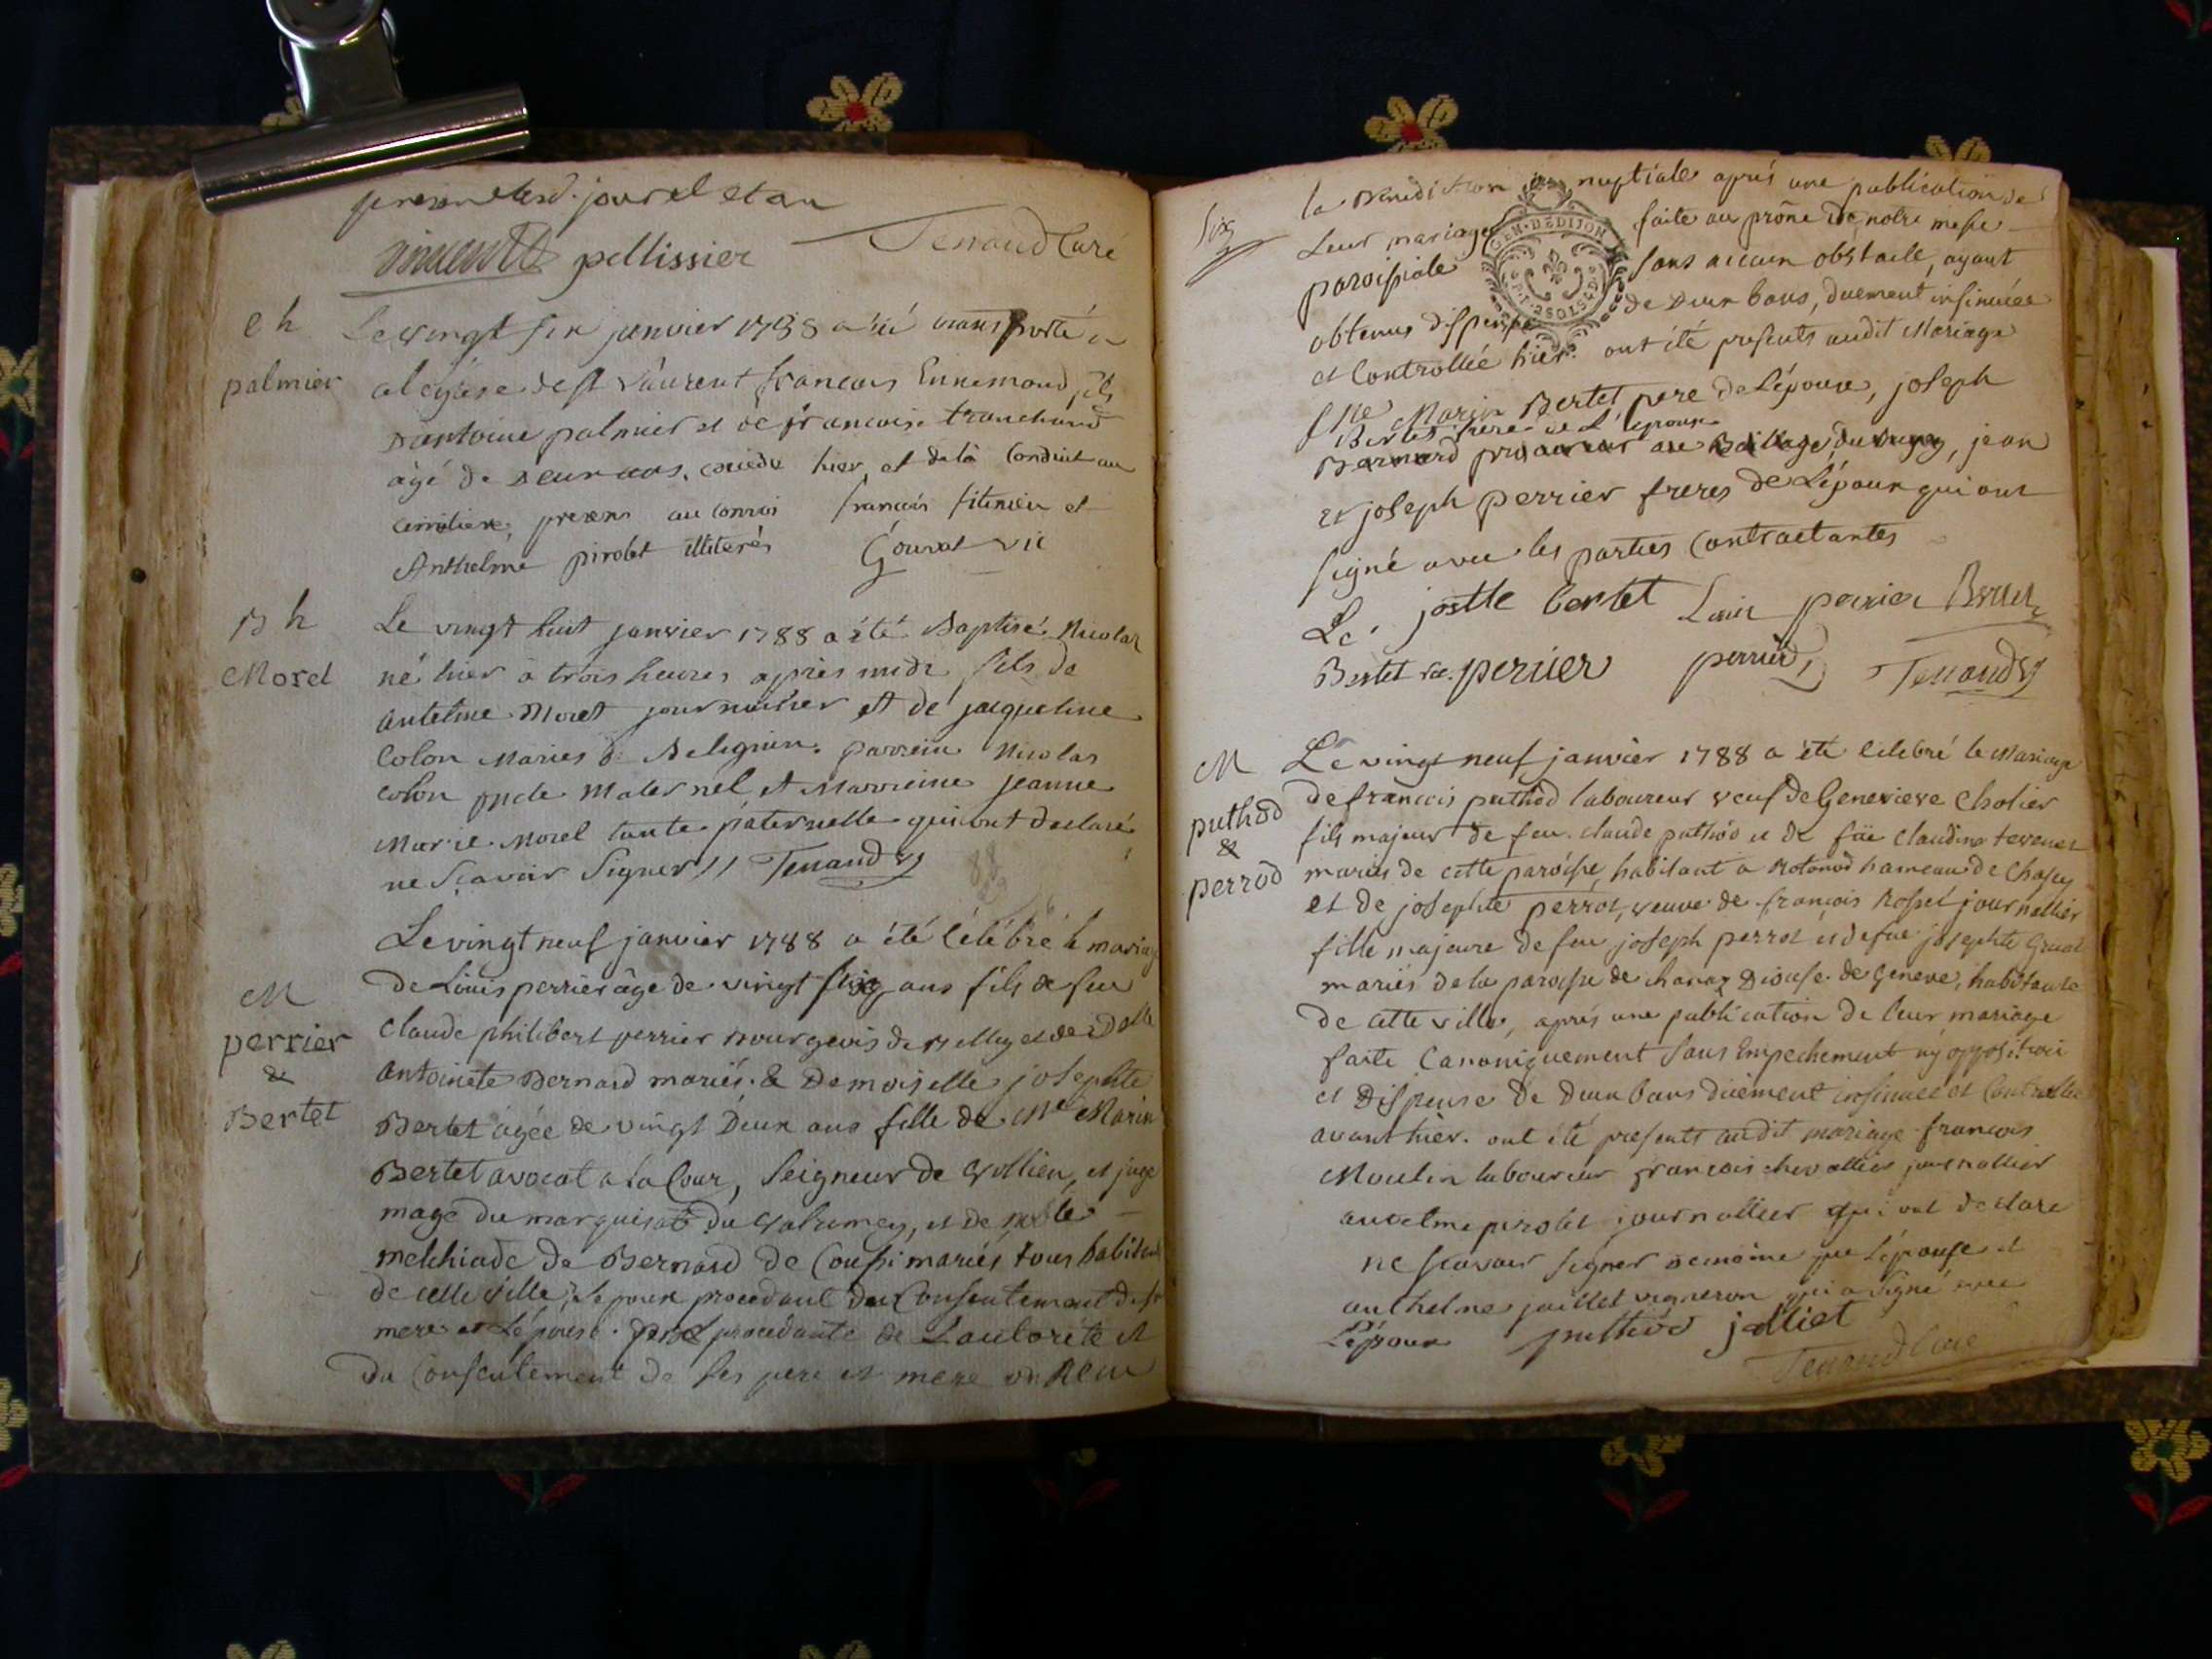 jour et et an
pellissier
Tenand Curé
e h
palmier
Le vingt six janvier 1788 a été transporté a
l'eglise de st Laurent francois Ennemond fils
D antoine palmier et de francoise tranchand
âgé de deux ans, décédé hier, et delà Conduit au
cimitiere, presens au convoi francois et
Anthelme pirolet illiterés Gouvat vic
B h
Morel
Le vingt huit janvier 1788 a été Baptisé Nicolas
né hier à trois heures après midi, fils de
antelme Morel journalier et de jacqueline
Colon Mariés parrein Nicolas
colon oncle Maternel, et Marreine jeanne
Marie Morel tante paternelle qui ont declaré
ne Sçavoir Signer // Tenand
M
perrier
&
Bertet
Le vingt neuf janvier 1788 a été Célébré le mariage
de Louis perrier âgé de vingt ans fils de feu
Claude philibert perrier Bourgeois de Belley et de Dlle
antoinete Bernard mariés. & Demoiselle josephte
Bertet agée de vingt Deux ans fille de Me Marin
Bertet avocat a la Cour, Seigneur de Vollien, et juge
mage du marquisat du Valromey, et de noble
melchiade De Bernard de mariés, tous habitans
de cette Ville, L'epoux procedant du Consentement de sa
mere et L'épouse procedante de L'autorité et
du Consentement de ses pere et mere on Reçu
Six
la Benediction nuptiale aprés une publication de
Leur mariage faite au prône de notre messe
paroissiale sans aucun obstacle, ayant
GEN. DE DIJON
obtenus dispense de Deux bans, duement insinuée
et Controllée hier. ont été presents audit Mariage
Me Marin Bertet pere de L'épouse, joseph
Bertet frere de L'épouse
Bernard procureur au Bailliage du Bugey, jean
et joseph perrier freres de L'époux qui ont
signé avec les parties Contractantes
Le. jostte bertet Louis perrier
Bertet perrier perrier Tenand
M
puthod
&
perrod
Le vingt neuf janvier 1788 a été célébré le Mariage
de francois puthod laboureur veuf de Genevieve Cholier
fils majeur de feu claude puthod et de fue Claudine
mariés de cette paroisse, habitant a Rotonod hameau de Chasey
et de josephte perrot, veuve de françois Rosset journallier
fille majeure de feu joseph perrot et de fue josephte
mariés de la paroisse de chanaz Diocese de Geneve, habitante
de Cette ville, aprés une publication de leur mariage
faite Canoniquement sans Empechement ny opposition
et Dispense de Deux bans duement insinuée et Controllée
avant hier. ont été presents audit mariage françois
Moulin laboureur françois chevallier journallier
antelme pirolet journallier qui ont declaré
ne sçavoir signer de même que L'épouse et
anthelme juillet vigneron qui a signé avec
L'époux puthod jolliet
Tenand Curé